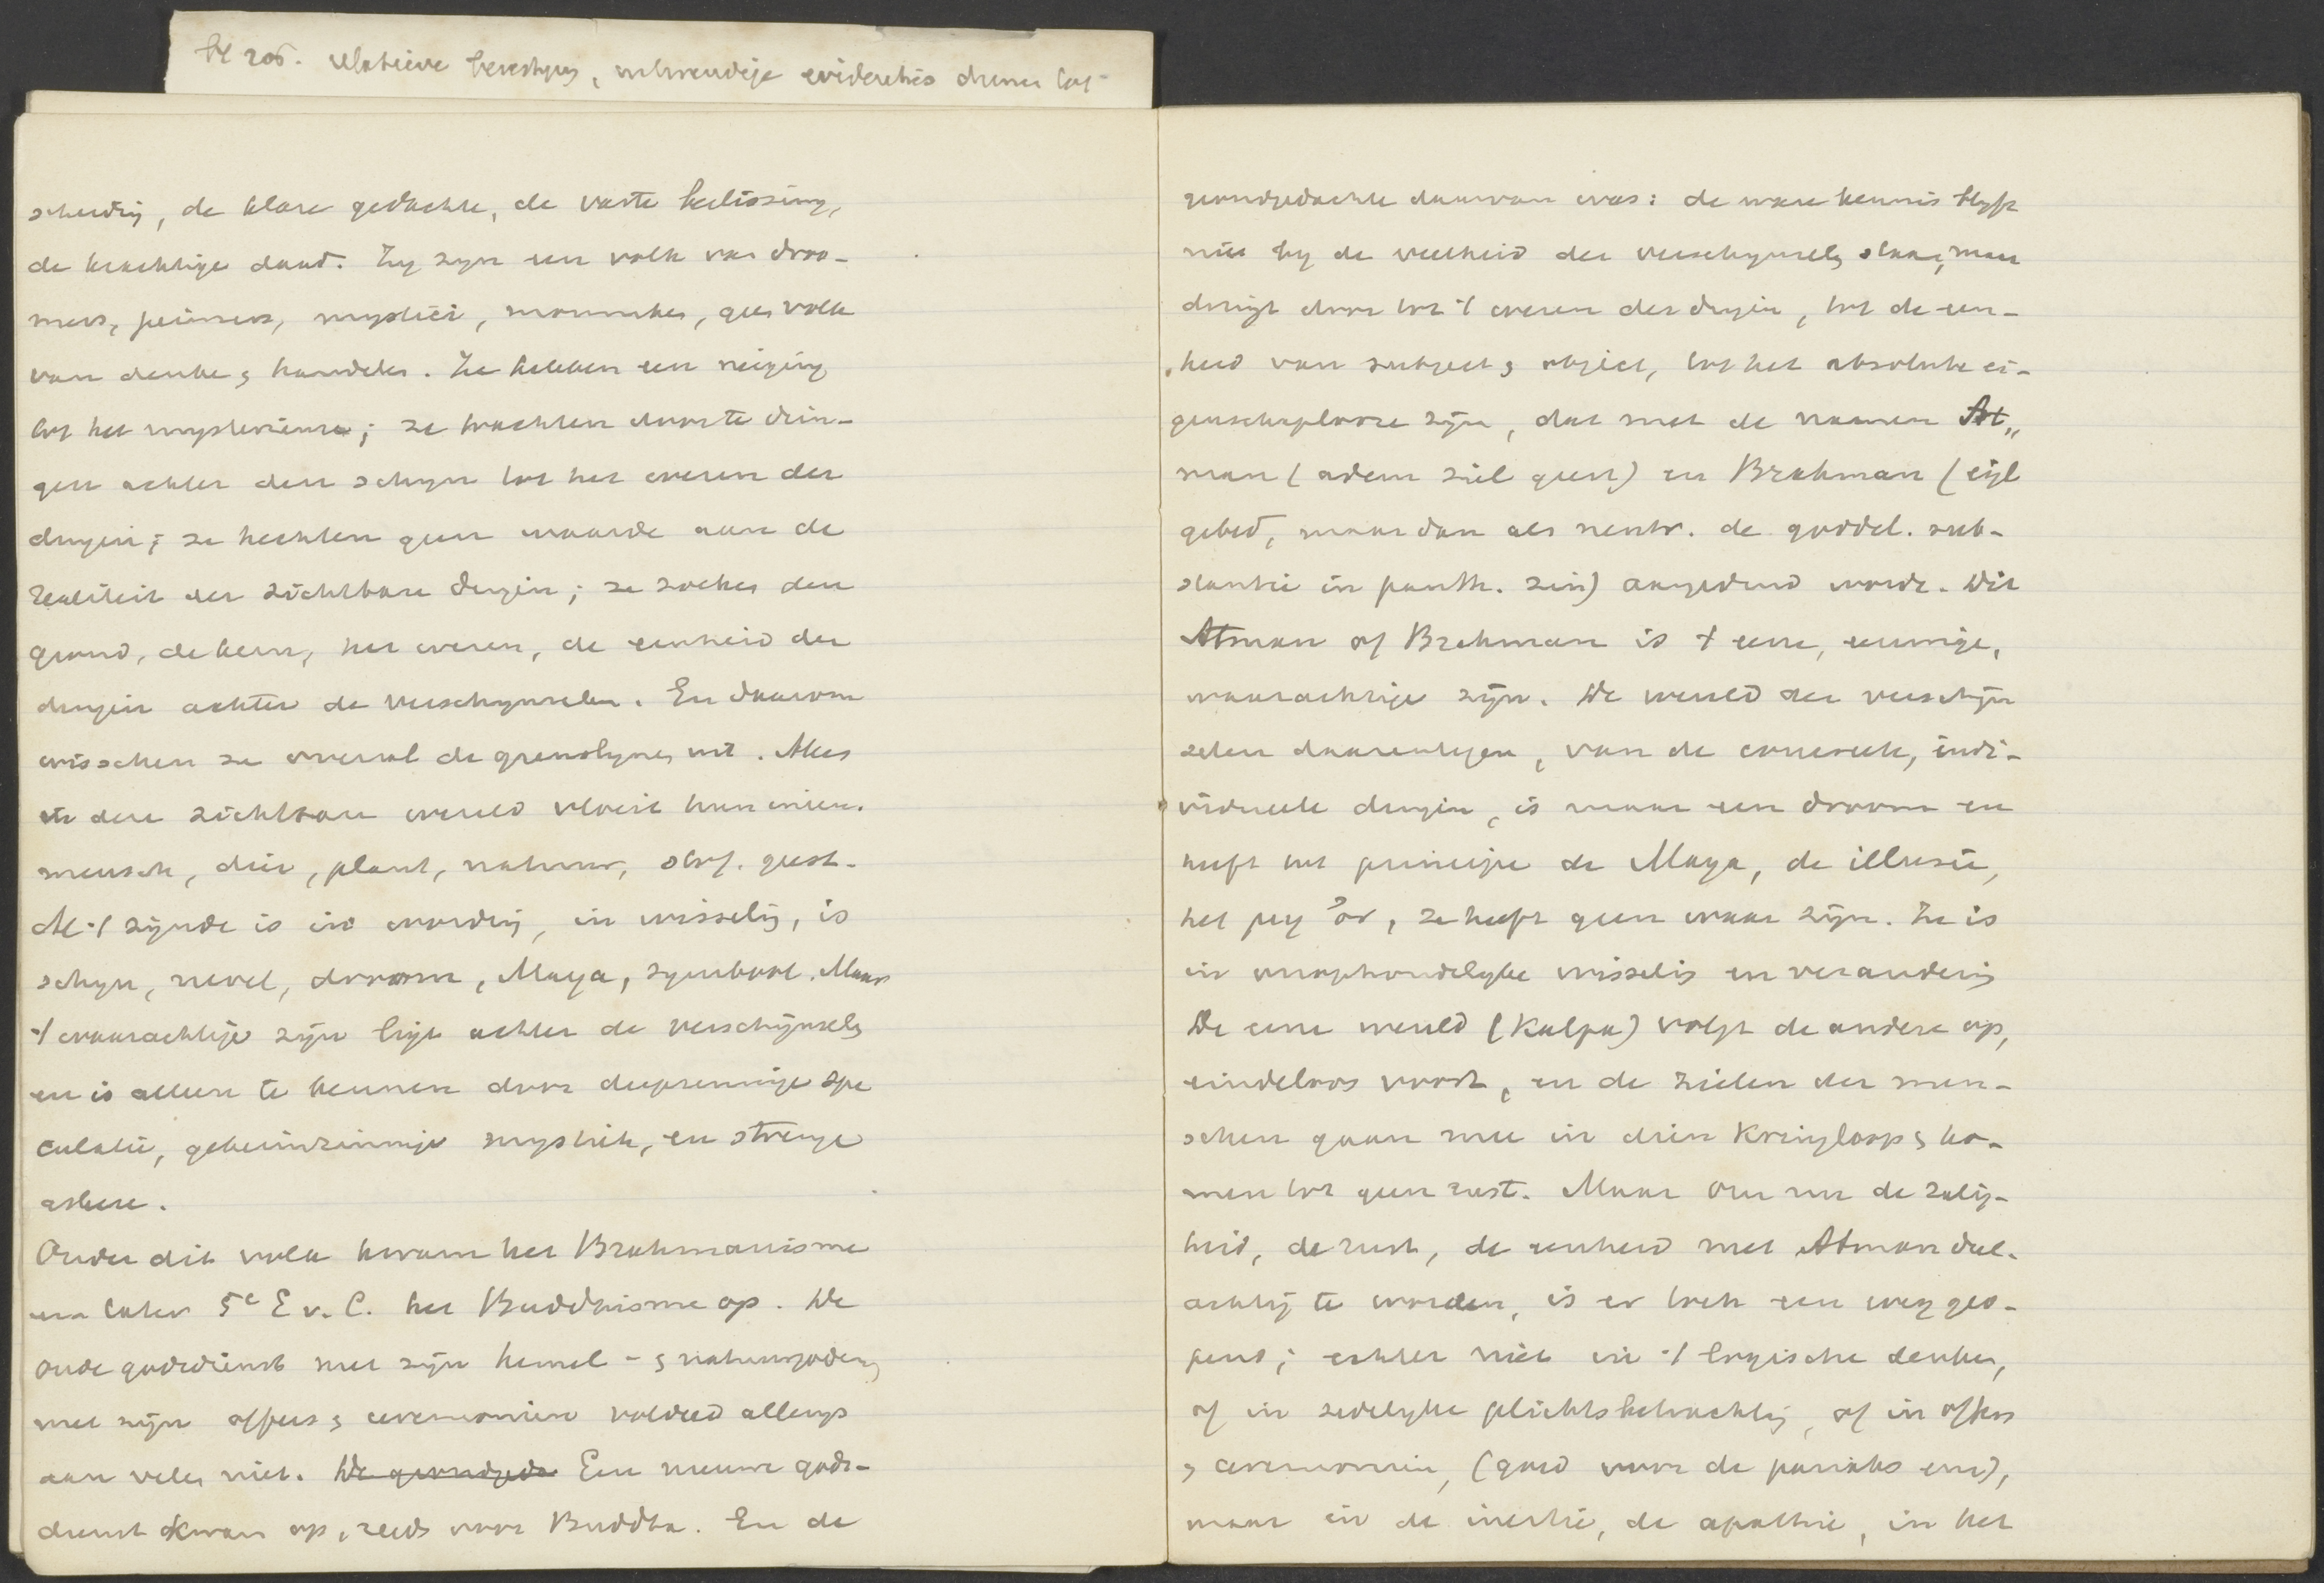 bl 205. relatieve
scheidig, de klare gedachte, de vaste beslissing,
de krachtige daad. Zy zyn een volk van droo-
mers, peinzers, mystici, monniken, geen volk
van denke, handelen. Ze hebben een neiging
tot het mysterieuse; ze trachten door te drin-
gen achter den schyn tot het wezen der
dingen; ze hechten geen waarde aan de
realiteit der zichtbare dingen; ze zoeken den
grond, de kern, het wezen, de eenheid der
dingen achter de verschynselen. En daarom
wisschen ze overal de grenslynen uit. Alles
in deze zichtbare wereld vloeit hun ineen.
mensch, dier, plant, natuur, stof. geest.
Al 't zijnde is in wording, in wisselig, is
schyn, nevel, droom, Maya, symbool. Maar
't waarachtige zijn ligt achter de verschijnsels
en is alleen te kennen door diepzinnige spe
culatie, geheimzinnige mystiek, en strenge
askese.
Onder dit volk kwam het Brahmanisme
en later 5e E v. C. het Buddhisme op. De
oude godsdienst met zijn hemel- & natuurgoden,
met zijn offers & ceremoniën voldeed allengs
aan velen niet. De grondgeda Een nieuwe gods-
dienst kwam op, reeds voor Buddha. En de
grondgedachte daarvan was: de ware kennis blyft
niet by de veelheid der verschynsels staan, maar
dringt door tot 't wezen der dingen, tot de een-
heid van subject & object, tot het absolute ei-
genschaploose zijn, dat met de namen At„
man (adem ziel geest) en Brahman (eigl
gebed, maar dan als neutr. de goddel. sub-
stantie in panth. zin) aangeduid wordt. Dit
Atman of Brahman is 't eene, eenige,
waarachtige zijn. De wereld der verschijn
selen daarentegen, van de concrete, indi-
vidueele dingen, is maar een droom en
heeft tot principe de Maya, de illusie,
het μη ὄν, ze heeft geen waar zijn. Ze is
in onophoudelyke wisselig en veranderig
De eene wereld (Kalpa) volgt de andere op,
eindeloos voort, en de zielen der men-
schen gaan mee in dien Kringloop & ko-
men tot geen rust. Maar om nu de zalig-
heid, de rust, de eenheid met Atman deel-
achtig te worden, is er toch een weg geo-
pend; echter niet in 't logische denken,
of in zedelyke plichtsbetrachtig, of in offers
& ceremoniën, (goed voor de pariahs enz),
maar in de inertie, de apathie, in het